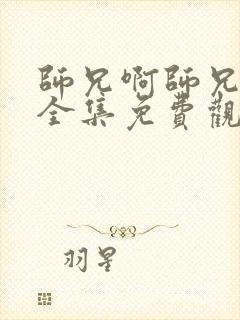 師兄啊師兄
全集免費觀
羽星